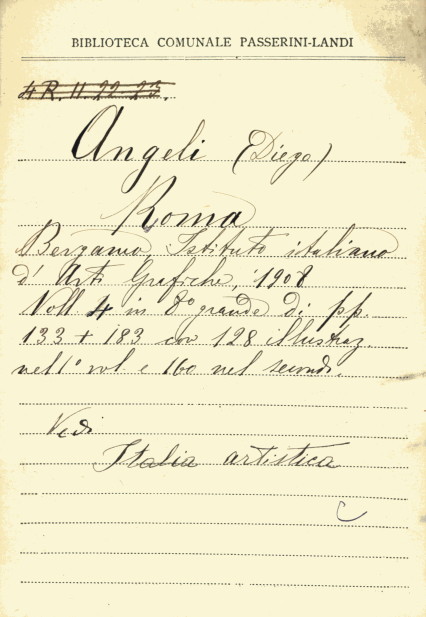 BIBLIOTECA COMUNALE PASSERINI-LANDI
4 R. II. 22-23.
Angeli (Diego)
Roma
Bergamo Istituto italiano
d'Arti Grafiche, 1908
Voll 4 in 8° grande di pp.
133 + 183 con 128 illustraz.
nell 1° vol e 160 nel secondo.
Vedi
Italia artistica